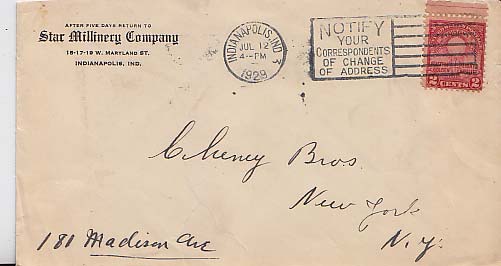 AFTER FIVE DAYS RETURN TO
Star Millinery Company
15-17-19 W. MARYLAND ST.
INDIANAPOLIS, IND.
INDIANAPOLIS, IND.
JUL 12
4-PM
1929
3
NOTIFY
YOUR
CORRESPONDENTS
OF CHANGE
OF ADDRESS
2 CENTS 2
Cheney Bros.
New York
N.Y.
181 Madison Ave